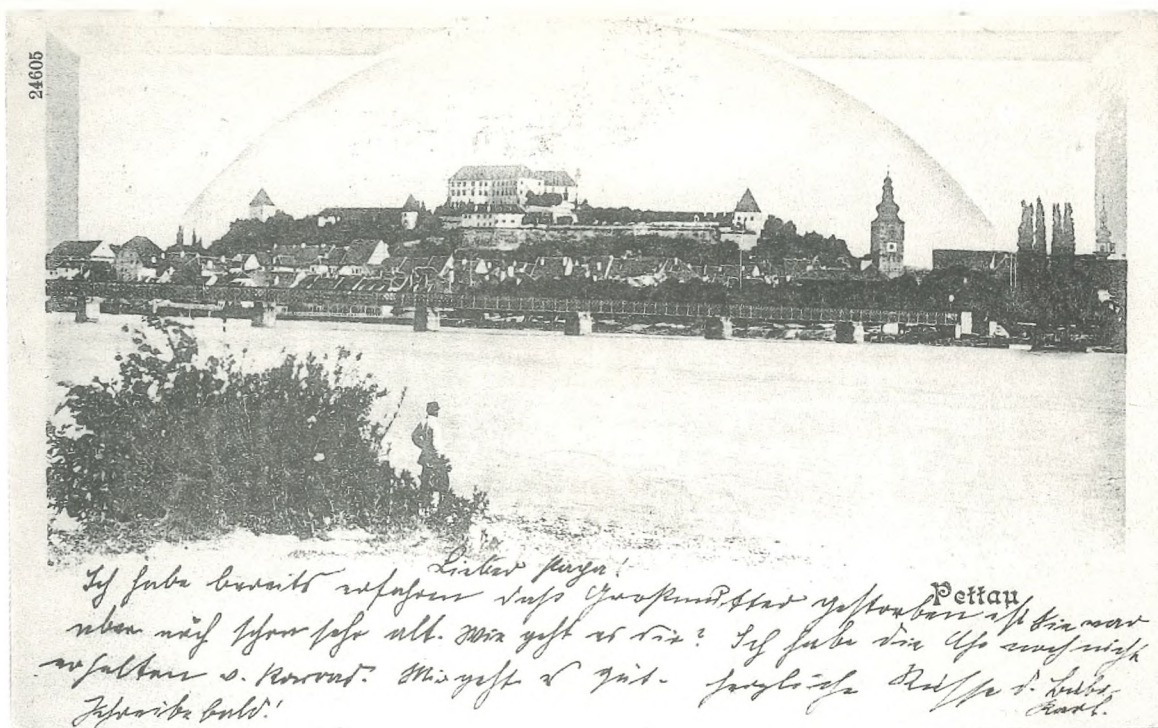 24605
Pettau
Lieber Papa!
Ich habe bereits erfahren daß Großmutter gestorben ist Sie war
aber auch schon sehr alt. Wie geht es Dir? Ich habe die Uhr noch nicht
erhalten v. Konrad. Mir geht es gut. Herzliche Küsse d. Bube
Schreibe bald! Karl.